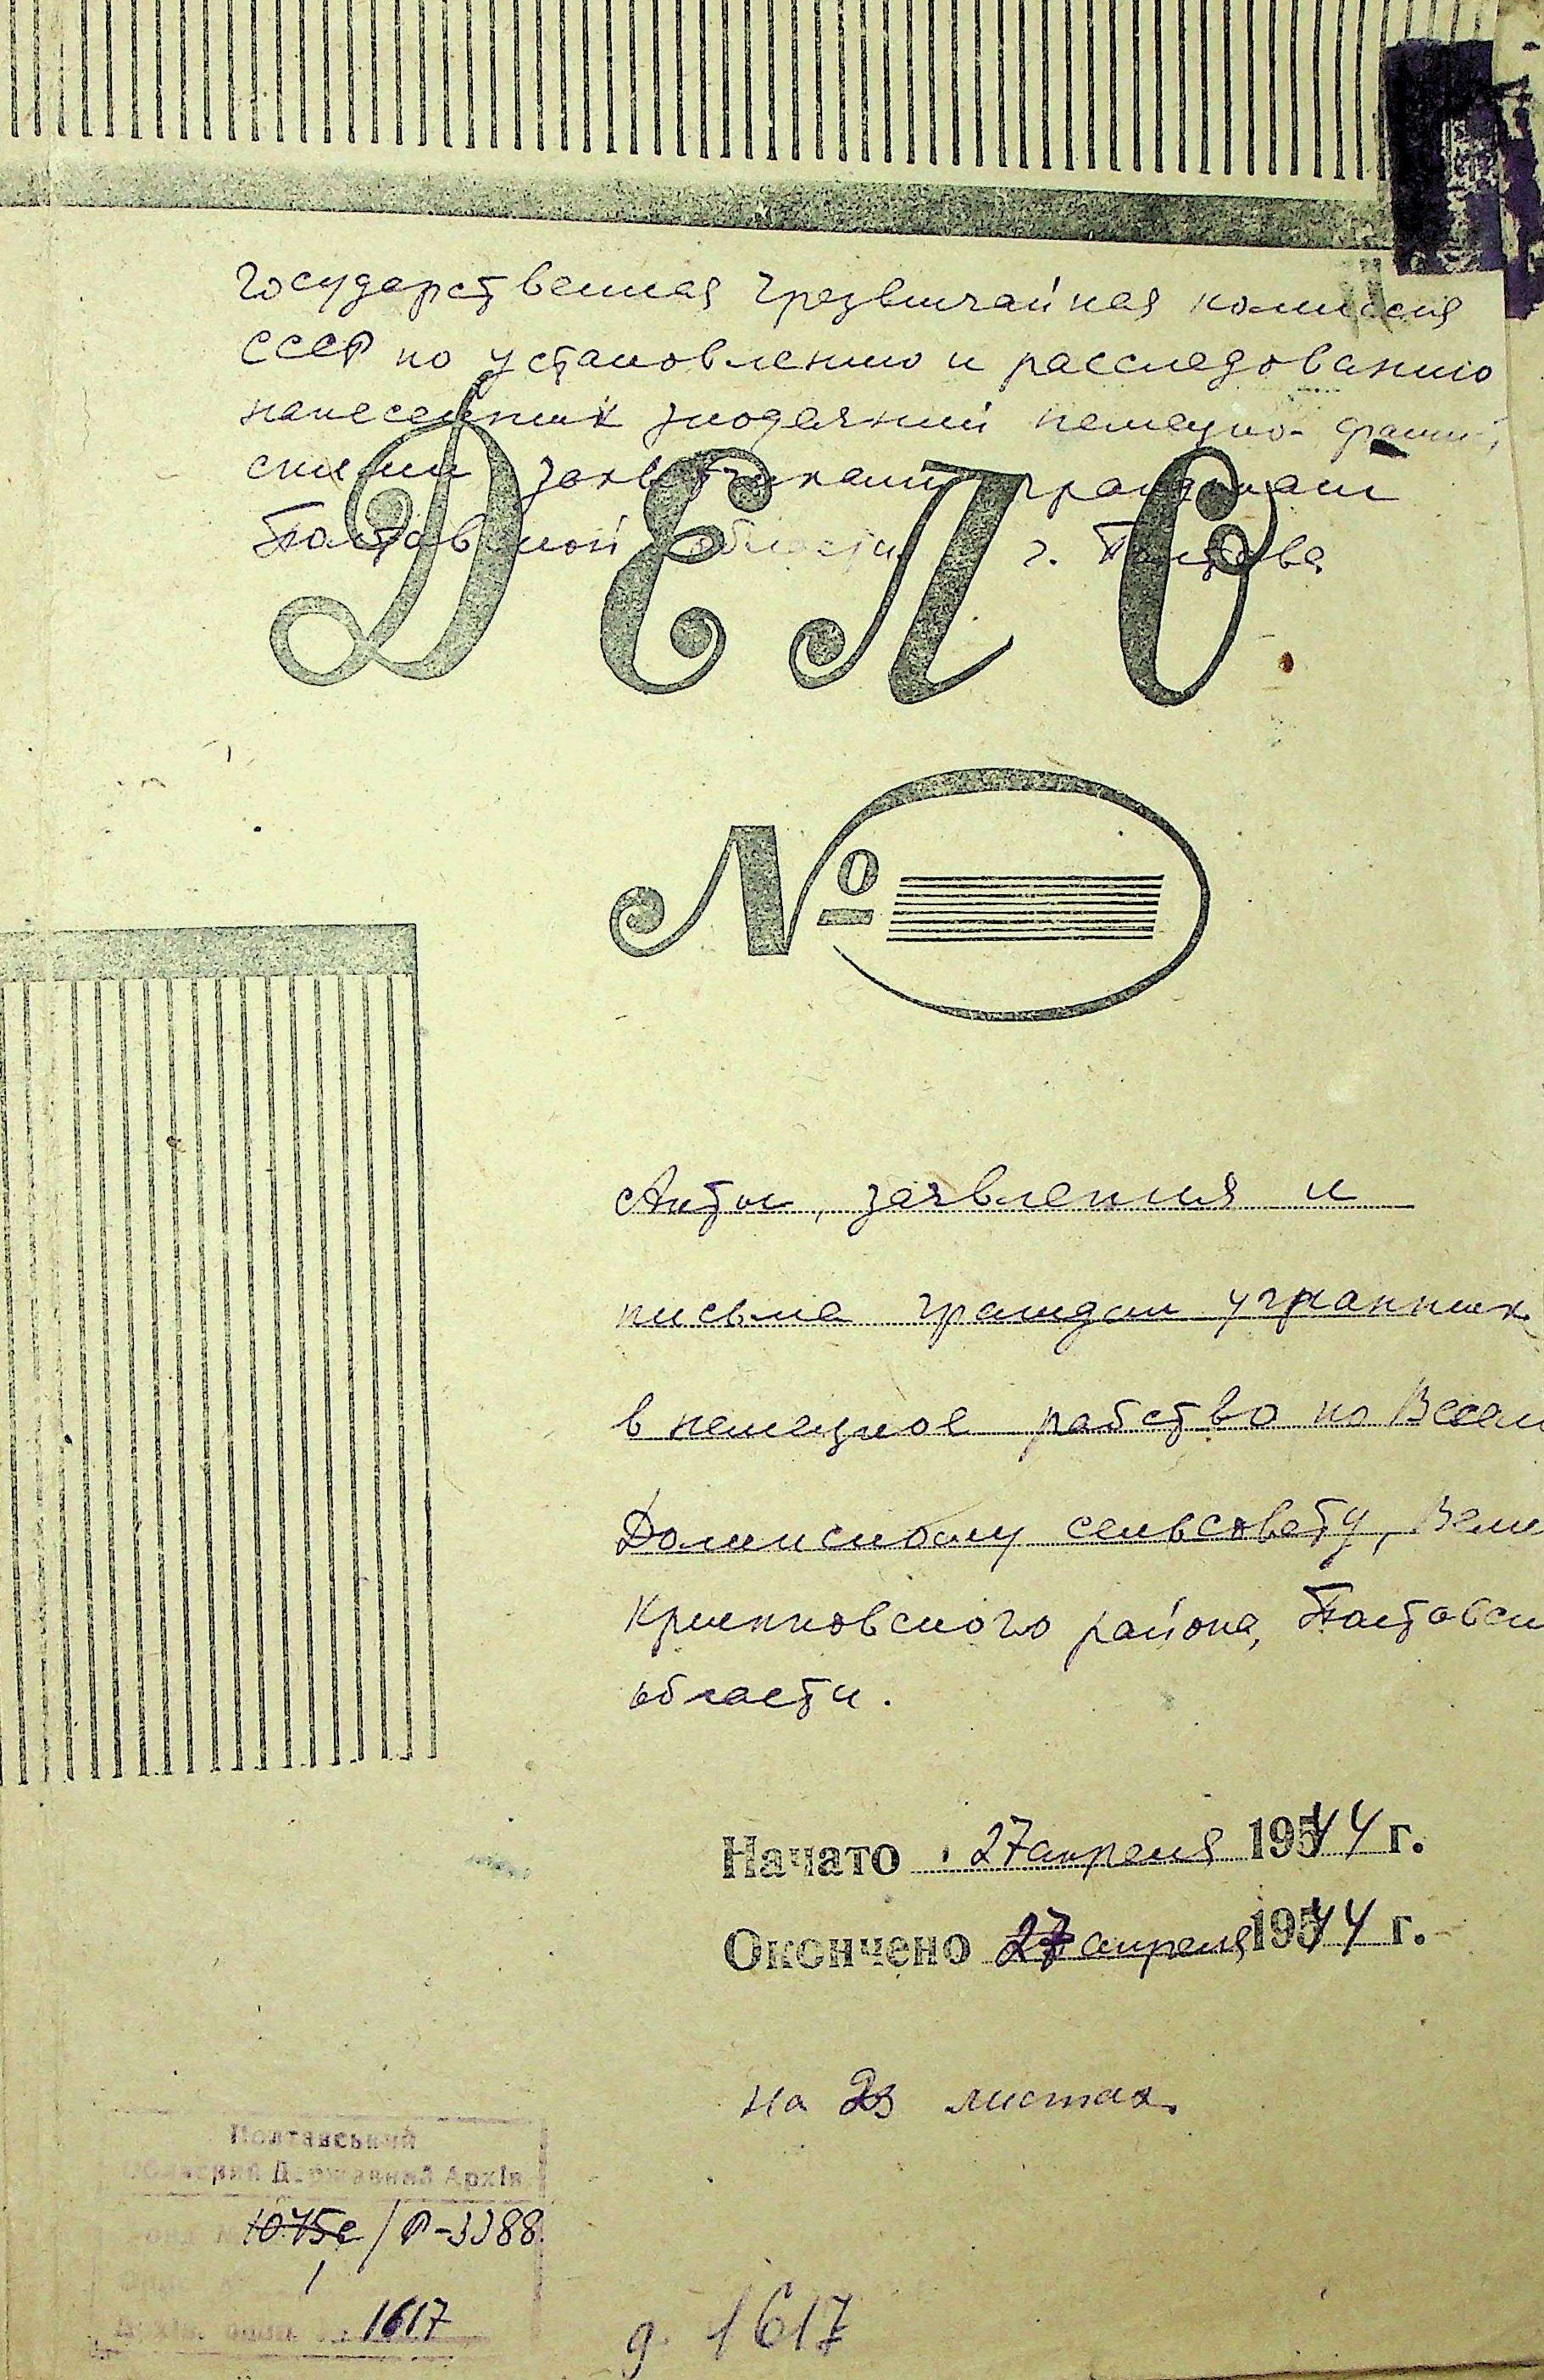 Государственная Чрезвычайная комиссия
СССР по установлению и расследованию
нанесенных злодеяний немецко-фашист
скими захватчиками гражданам
Полтавской области г. Полтава
ДЕЛО
№
Акты, заявления и
письма граждан угнанных
в немецкое рабство по Весел
Долинскому сельсовету, Вели
Крынковского района, Полтавск
области.
Начато 27 апреля 1944 г.
Окончено 27 апреля 1944 г.
на 23 листах.
Полтавський
Обласний Державний Архів
Фонд № 1045с/Р-3388
Опис № 1
Архів. один. 1617
д. 1617